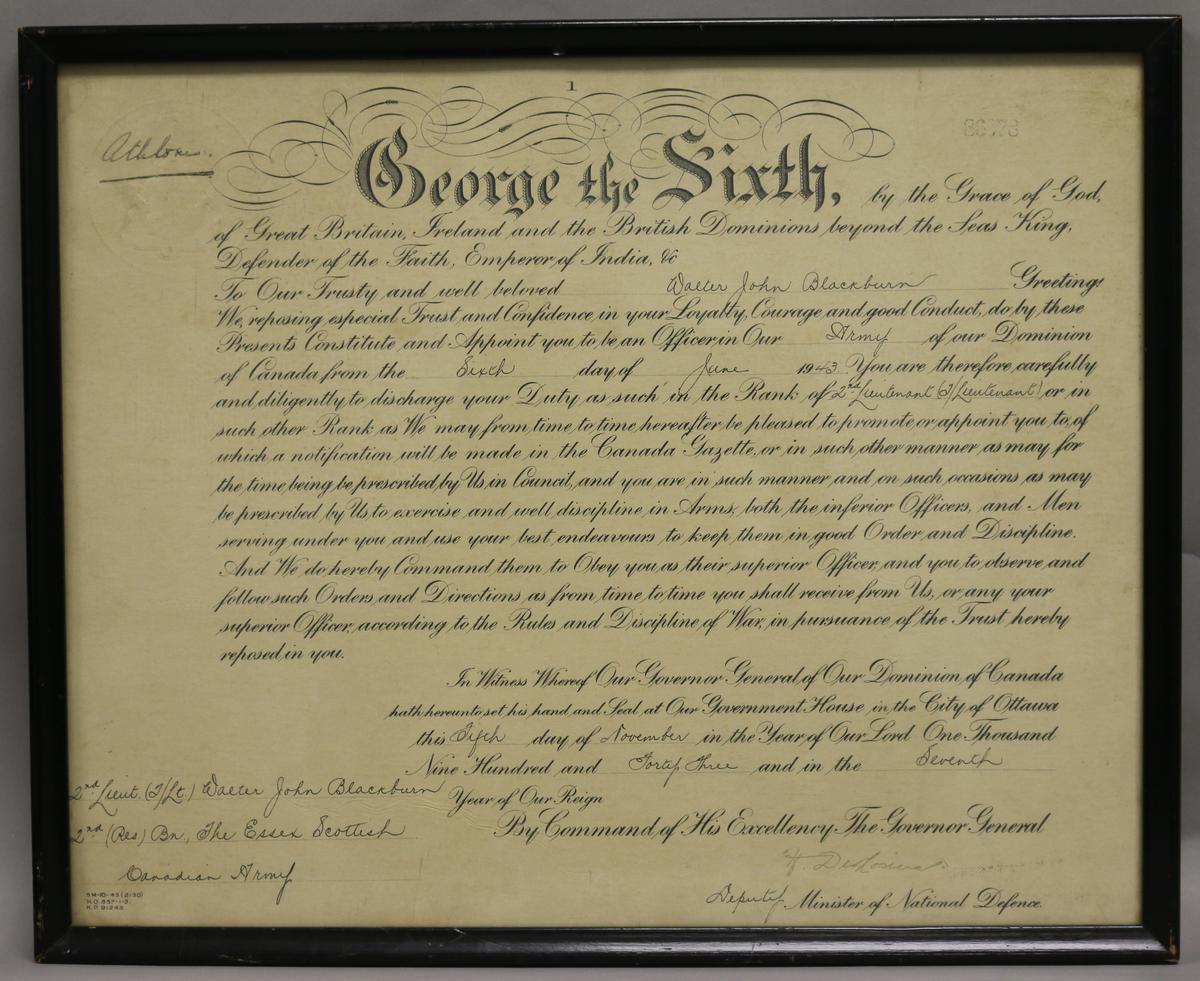 1
Athlone.
George the Sixth, by the Grace of God,
of Great Britain, Ireland and the British Dominions beyond the Seas King,
Defender of the Faith, Emperor of India, &c
To Our Trusty and well beloved Walter John Blackburn Greeting:
We, reposing especial Trust and Confidence in your Loyalty, Courage and good Conduct, do by these
Presents Constitute and Appoint you to be an Officer in Our Army of our Dominion
of Canada from the Sixth day of June 1943. You are therefore carefully
and diligently to discharge your Duty as such in the Rank of 2nd Lieutenant (T/Lieutenant) or in
such other Rank as We may from time to time hereafter be pleased to promote or appoint you to, of
which a notification will be made in the Canada Gazette, or in such other manner as may for
the time being be prescribed by Us in Council, and you are in such manner and on such occasions as may
be prescribed by Us to exercise and well discipline in Arms, both the inferior Officers, and Men
serving under you and use your best endeavours to keep them in good Order and Discipline.
And We do hereby Command them to Obey you as their superior Officer, and you to observe and
follow such Orders and Directions as from time to time you shall receive from Us, or any your
superior Officer, according to the Rules and Discipline of War, in pursuance of the Trust hereby
reposed in you.
In Witness Whereof Our Governor General of Our Dominion of Canada
hath hereunto set his hand and Seal at Our Government House in the City of Ottawa
this Fifth day of November in the Year of Our Lord One Thousand
Nine Hundred and Forty Three and in the Seventh
Year of Our Reign
By Command of His Excellency The Governor General
Deputy Minister of National Defence.
2nd Lieut. (T/Lt.) Walter John Blackburn
2nd (Res) Bn, The Essex Scottish
Canadian Army
5M-10-43 (2130)
H.Q. 857-1-3
K.P. 91242